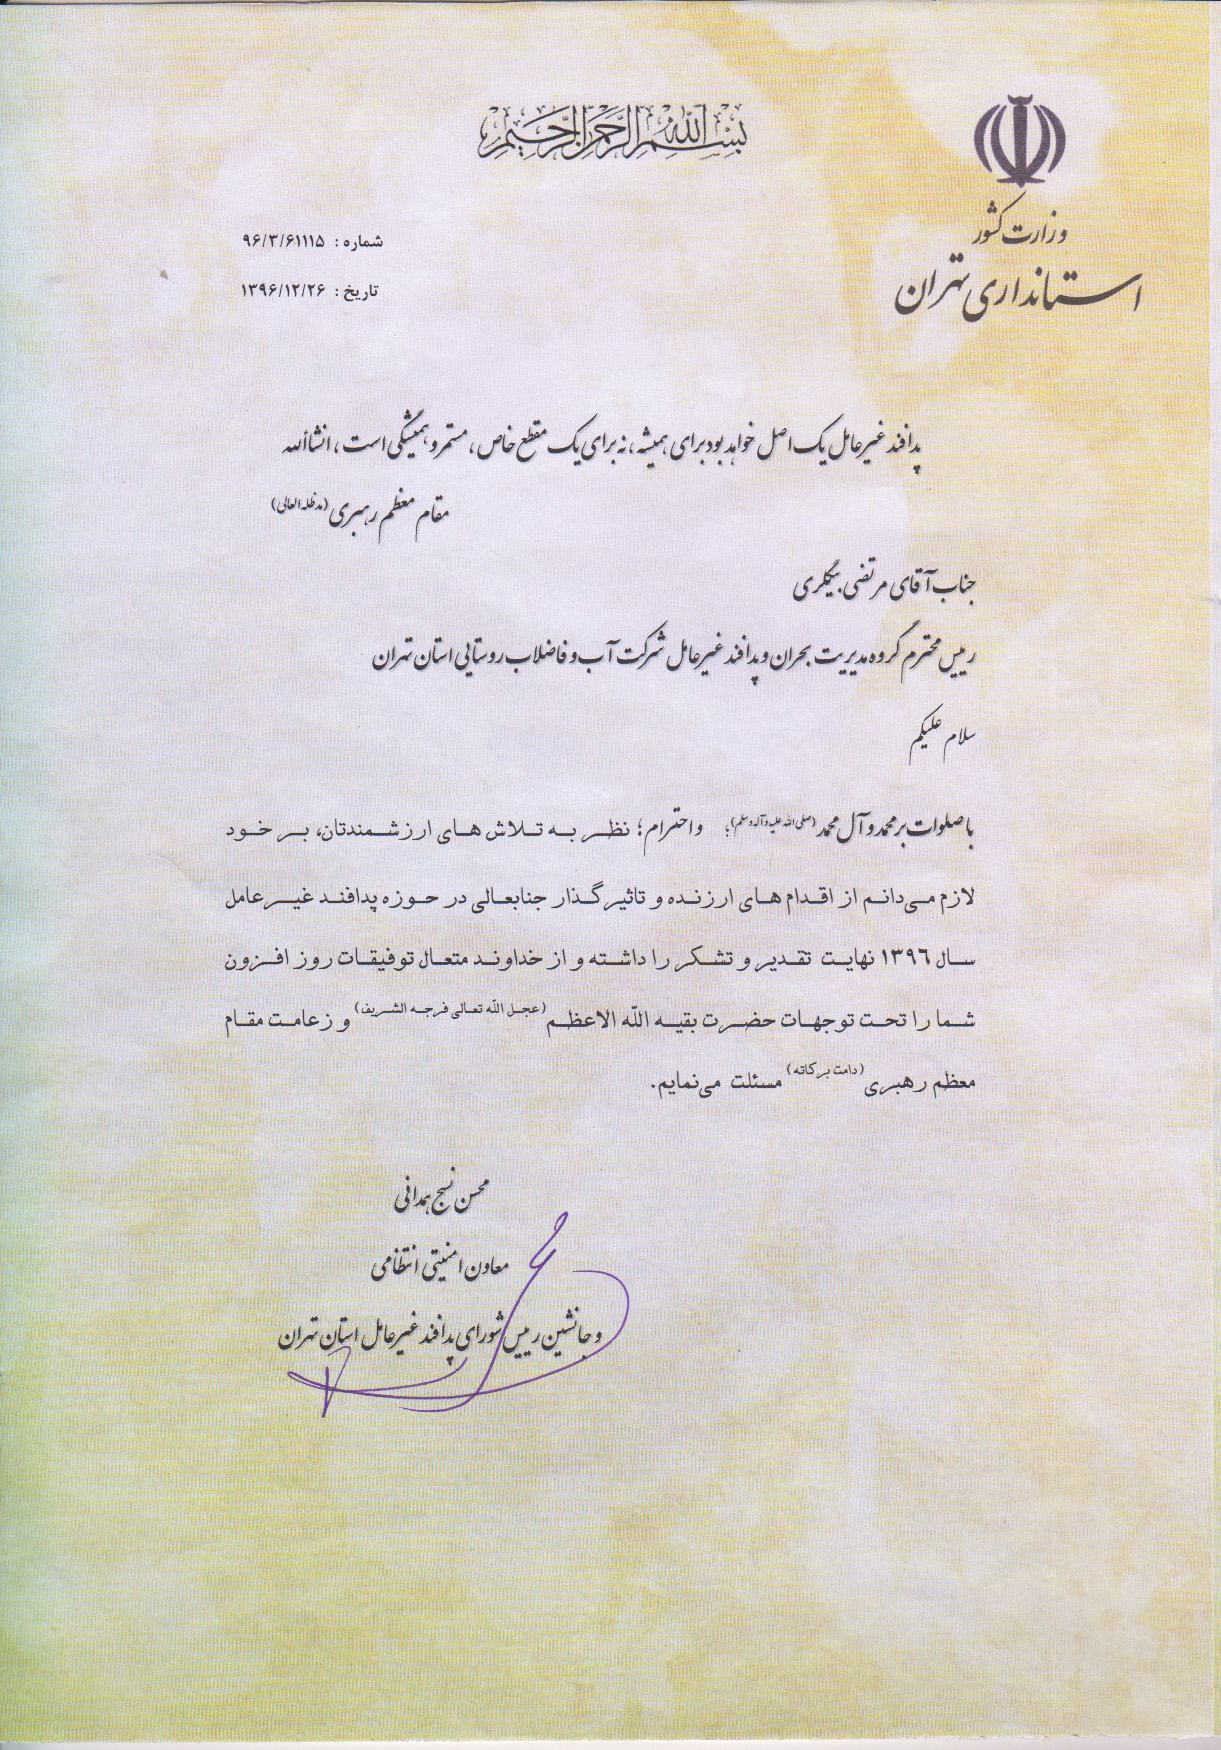 بسم الله الرحمن الرحیم
وزارت کشور
استانداری تهران
شماره : ۹۶/۳/۶۱۱۱۵
تاریخ : ۱۳۹۶/۱۲/۲۶
پدافند غیرعامل یک اصل خواهد بود برای همیشه ، نه برای یک مقطع خاص ، مستمر و همیشگی است ، انشاالله
مقام معظم رهبری (مدظله العالی)
جناب آقای مرتضی بیگلری
رییس محترم گروه مدیریت بحران و پدافند غیرعامل شرکت آب و فاضلاب روستایی استان تهران
سلام علیکم
با صلوات بر محمد و آل محمد (صلی الله علیه و آله وسلم)؛ و احترام؛ نظر به تلاش های ارزشمندتان، بر خود
لازم می‌دانم از اقدام های ارزنده و تاثیرگذار جنابعالی در حوزه پدافند غیرعامل
سال ۱۳۹۶ نهایت تقدیر و تشکر را داشته و از خداوند متعال توفیقات روز افزون
شما را تحت توجهات حضرت بقیه اللّه الاعظم (عجل اللّه تعالی فرجه الشریف) و زعامت مقام
معظم رهبری (دامت برکاته) مسئلت می‌نمایم.
محسن نسج همدانی
معاون امنیتی انتظامی
و جانشین رییس شورای پدافند غیرعامل استان تهران